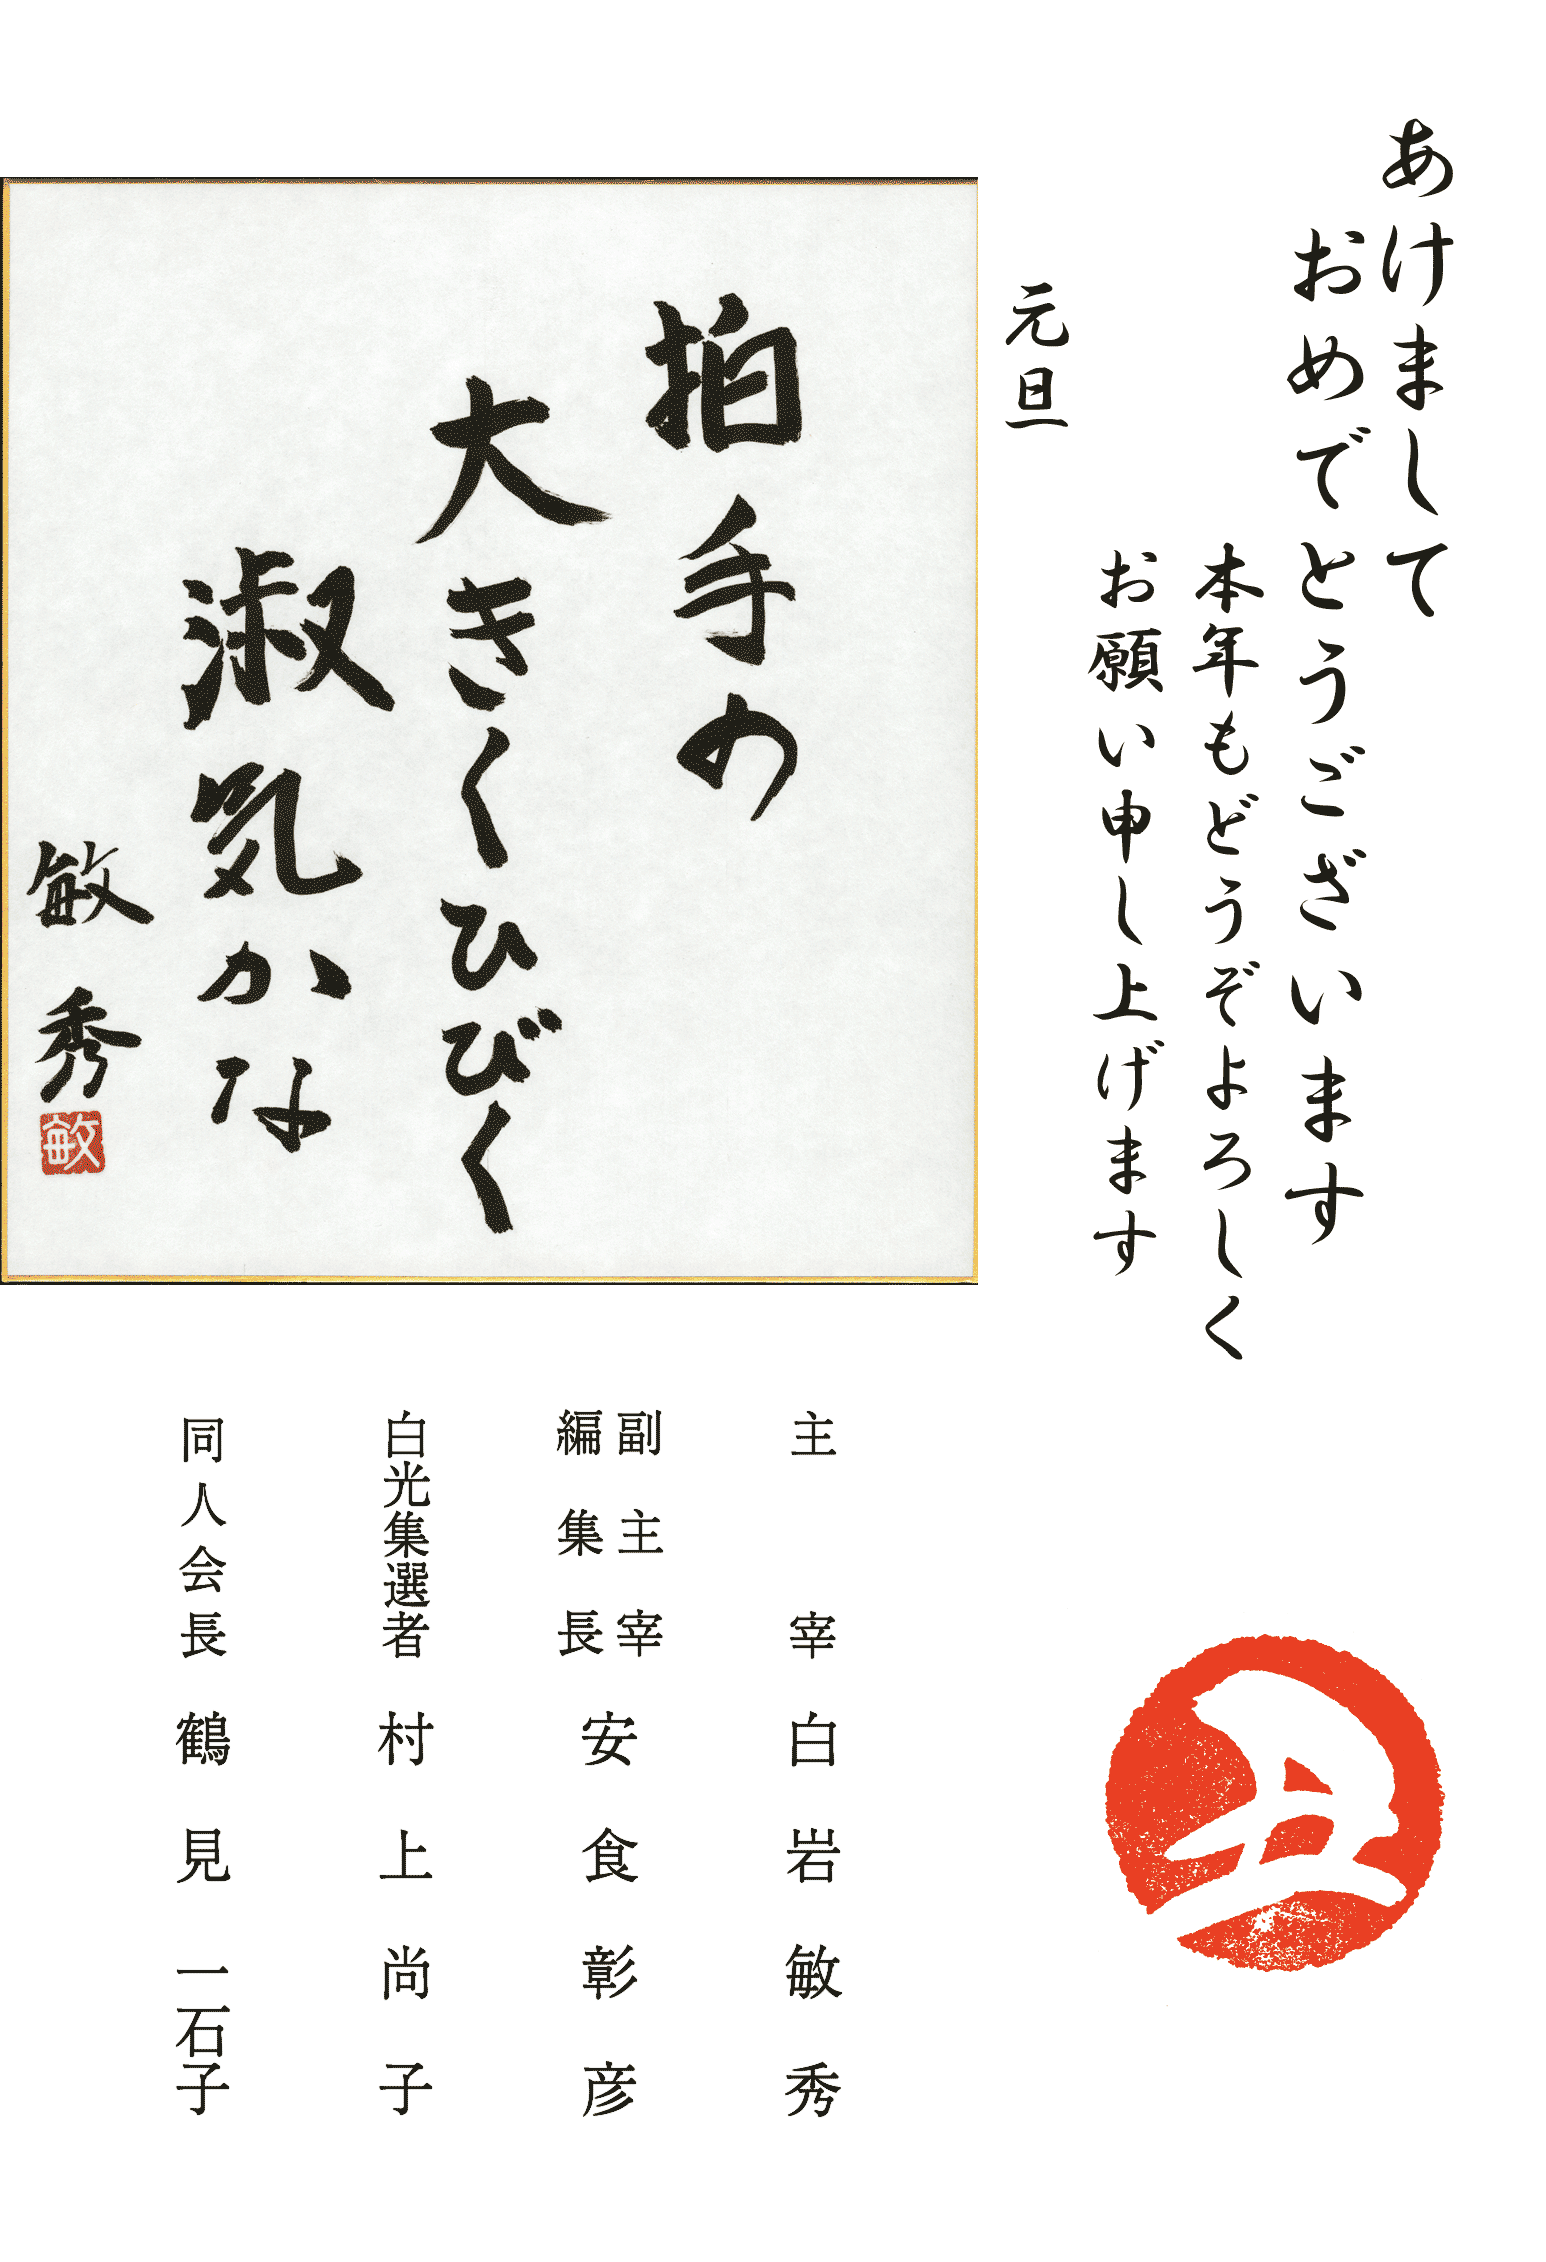 あけまして
おめでとうございます
本年もどうぞよろしく
お願い申し上げます
元旦
拍手の
大きくひびく
淑気かな
敏秀
敏
丑
主宰 白岩敏秀
副主宰
編集長 安食彰彦
白光集選者 村上尚子
同人会長 鶴見一石子